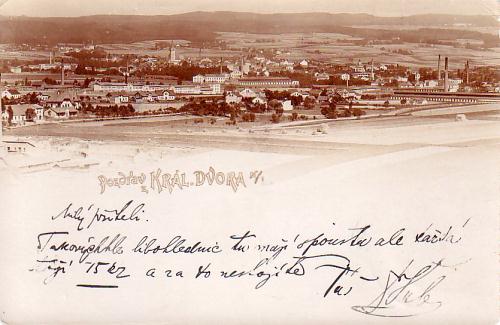 Pozdrav
z KRÁL. DVORA n/L
Milý příteli.
Takovýchhle libohlednic tu mají spoustu ale každá
stojí 15 kr a za to nestojíte
Tvůj